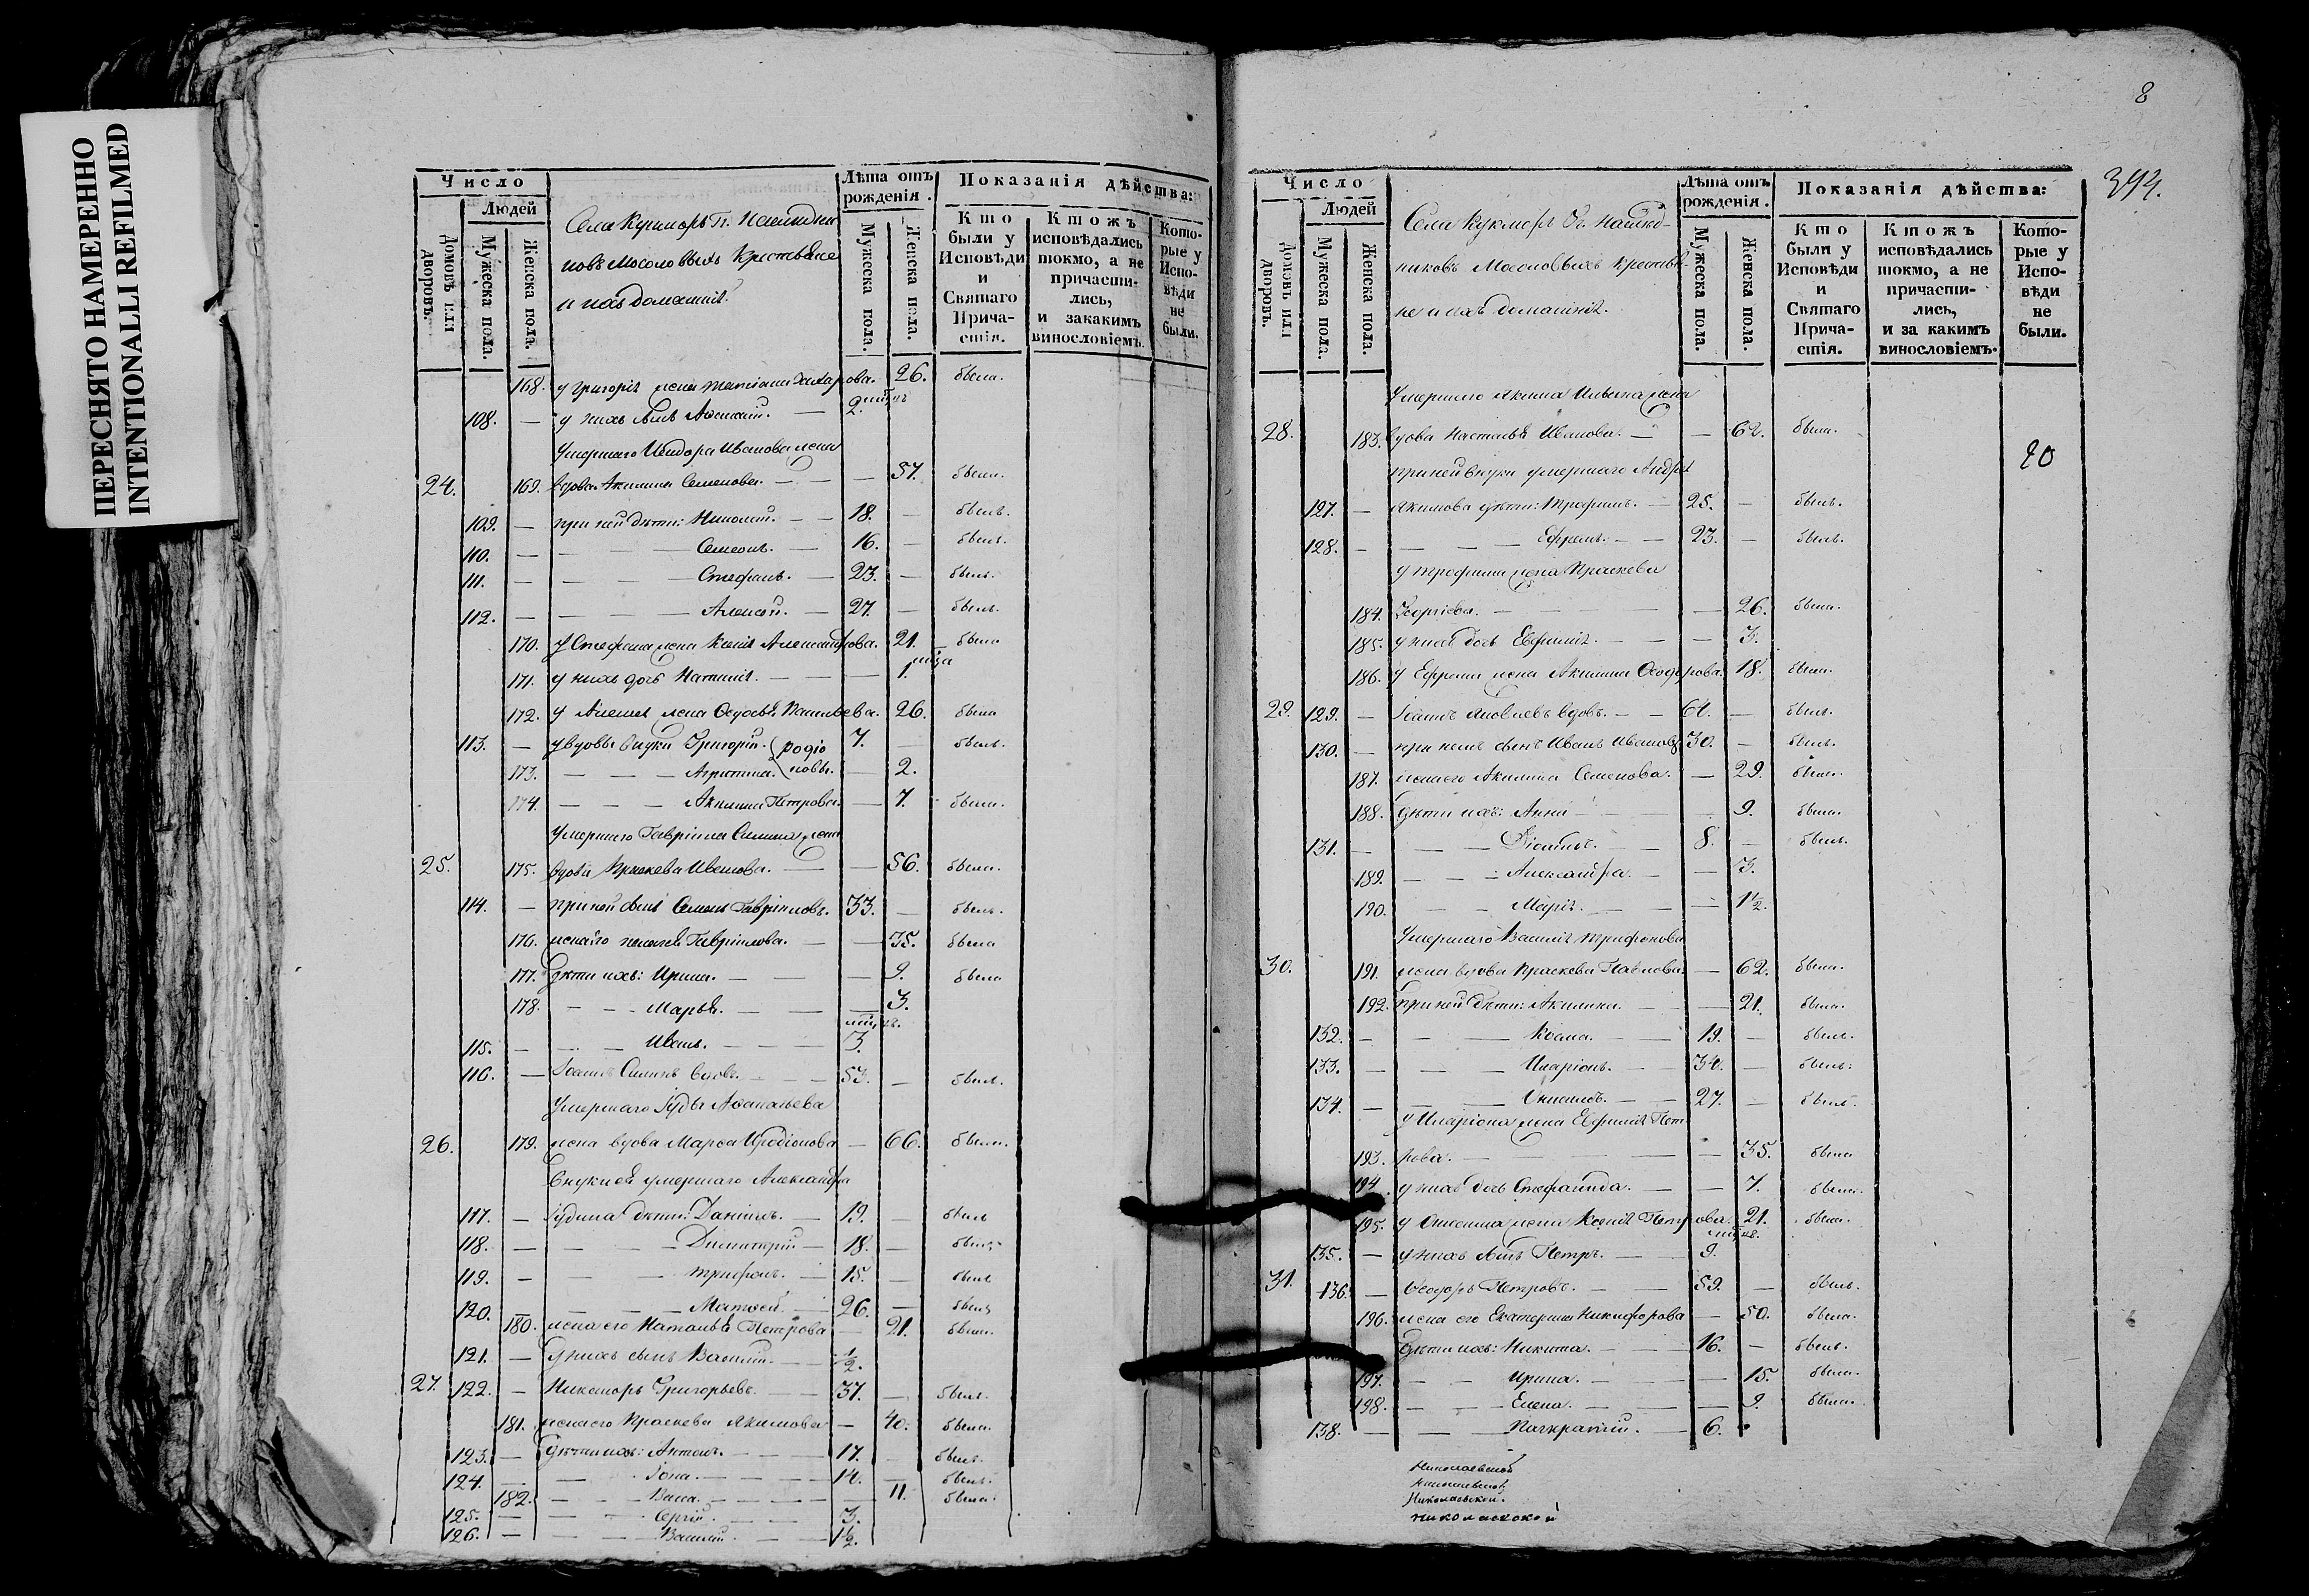 ПЕРЕСНЯТО НАМЕРЕННО
INTENTIONALLI REFILMED
Число
Людей
Домовъ или дворовъ.
Мужеска пола.
Женска пола.
Села Кукморъ Гг. Наслѣдни
ковъ Мосоловыхъ Крестьяне
и ихъ домашніе.
Лѣта отъ рожденія.
Мужеска пола.
Женска пола.
Показанія дѣйства:
Кто были у Исповѣди и Святаго Причастія.
Ктожъ исповѣдались токмо, а не причастились, и закакимъ винословіемъ.
Которые у Исповѣди не были.
168. у Григорія жена Татіана Захарова. 26. была.
108. — у нихъ сынъ Аѳанасій. — 2. мѣсяцъ
Умершаго Исидора Иванова жена
24. 169. вдова Акилина Семенова. — — — 57. была.
109. — при ней дѣти: Николай. — — 18. — былъ.
110. — — — — Семеонъ. — 16. — былъ.
111. — — — — Стефанъ. — 23. — былъ.
112. — — — — Алексѣй. — 27. — былъ.
170. У Стефана жена Ксенія Александрова. 21. была
171. у нихъ дочь Наталія. — — — 1.
172. у Алексѣя жена Ѳедосья Васильева. 26. была
113. — у вдовы внуки Григорій. Родіо 7. — былъ.
173. — — — Агрипина. новы. — 2.
174. — — — Акилина Петрова. — 7. была.
Умершаго Гавріила Силина жена
25. 175. вдова Праскева Иванова. — — 56. была.
114. — при ней сынъ Семенъ Гавріиловъ. 33. — былъ.
176. жена его Пелагея Гавріилова. — — 35. была
177. Дѣти ихъ: Ирина. — — — 9. была
178. — — — Марья. — — — 3.
115. — — — Иванъ. — — — 3.
116. — Іоаннъ Силинъ вдовъ. — — 53. — былъ.
Умершаго Іуды Аѳанасьева
26. 179. жена вдова Марѳа Иродіонова — 66. была.
Внуки ея умершаго Александра
117. — Іудина дѣти: Даніилъ. — 19. — былъ
118. — — — — Димитрій — 18. — былъ
119. — — — — Трифонъ. — 15. — былъ
120. — — — — Матвей. — 26. — былъ
180. жена его Наталья Петрова — 21. была.
121. — у нихъ сынъ Василій. — 1/2.
27. 122. — Никаноръ Григорьевъ. — — 37. — былъ.
181. жена его Праскева Якимова — 40. была.
123. — Дѣти ихъ: Антонъ. — — 17. — былъ.
124. — — — Іона. — — — 14. — былъ.
182. — — — Васса. — — — — 11. была.
125. — — — Сергій. — — 3.
126. — — — Василій. — — 1 1/2.
8
394.
Число
Людей
Домовъ или дворовъ.
Мужеска пола.
Женска пола.
Села Кукморъ Гг. Наслѣд-
никовъ Мосоловыхъ Крестья-
не и ихъ домашніе.
Лѣта отъ рожденія.
Мужеска пола.
Женска пола.
Показанія дѣйства:
Кто были у Исповѣди и Святаго Причастія.
Ктожъ исповѣдались токмо, а не причастились, и за какимъ винословіемъ.
Которые у Исповѣди не были.
28. 183. вдова Настасья Иванова. — — 62. была.
20
при ней внуки умершаго Андрея
127. — Якимова дѣти: Трофимъ. — 25. — былъ.
128. — — — — Ефремъ. — — 23. — былъ.
у Трофима жена Праскева
184. Георгіева. — — — 26. была.
185. у нихъ дочь Евфимія. — — — 3.
186. у Ефрема жена Акилина Ѳеодорова. 18. была.
29. 129. — Іоаннъ Яковлевъ вдовъ. — — 61. — былъ.
130. — при немъ сынъ Иванъ Ивановъ 30. — былъ.
187. жена его Акилина Семенова. — 29. была.
188. Дѣти ихъ: Анна — — — 9. была.
131. — — — 8. — былъ.
189. — — — Александра. — — 3.
190. — — Марія. — — — 1 1/2.
Умершаго Василія Трифонова
30. 191. жена вдова Праскева Павлова. — 62. была.
192. при ней дѣти: Акилина. — — 21. была.
132. — — — Козма. — — 19. — былъ.
133. — — — Иларіонъ. — — 34. — былъ.
134. — — — Онисимъ. — — 27. — былъ.
У Иларіона жена Евфимія Пет
193. рова. — — — — 35. была
194. у нихъ дочь Стефанида. — — 7. была.
195. у Онисима жена Ксенія Петрова. 21. была.
135. — у нихъ сынъ Петръ. — — 9.
31. 136. — Ѳеодоръ Петровъ. — — 59. — былъ.
196. жена его Екатерина Никифорова — 50. была.
Дѣти ихъ: Никита. — — 16. — былъ.
197. — — Ирина. — — — 15. была.
198. — — — Елена. — — — 9. была.
138. — — — Панкратій. — 6.
Николаевской
Николаевской
Николаевской.
Николаской